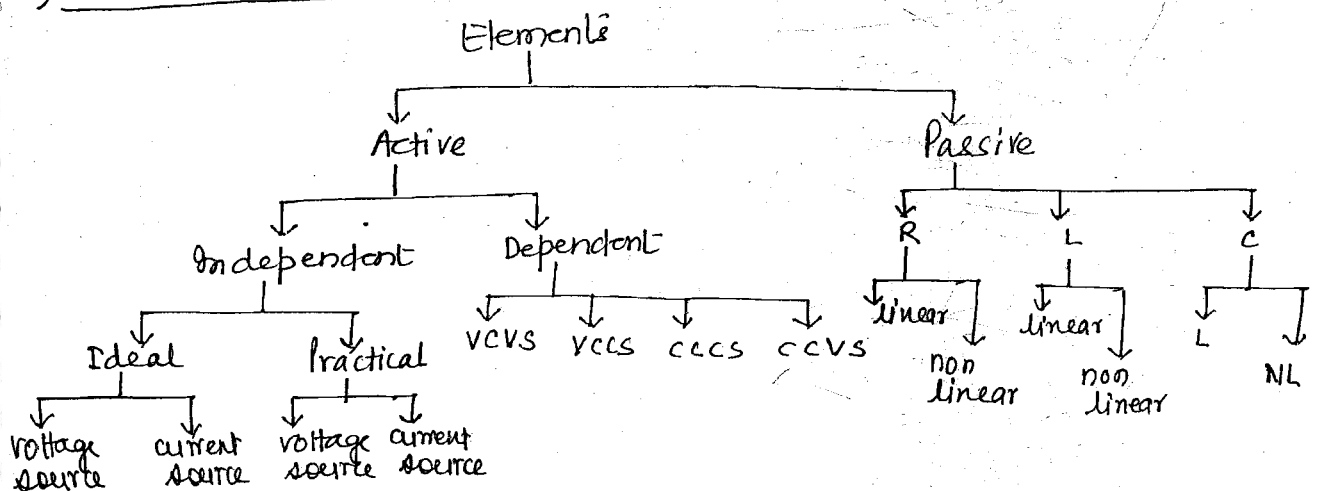 Elements
Active
Passive
Independent
Dependent
R
L
C
Ideal
Practical
VCVS
VCCS
CCCS
CCVS
linear
non
linear
linear
non
linear
L
NL
voltage
source
current
source
voltage
source
current
source